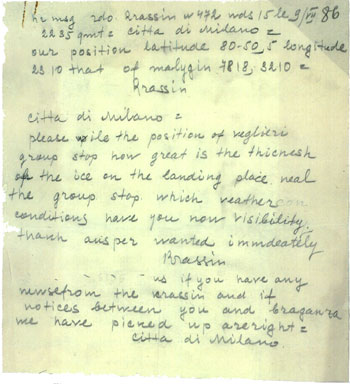 hr msg rdo Krassin w 472 wds 15 le 9/VII 86
2235 gmt = citta di Milano =
our position latitude 80-50,5 longitude
2310 that of malygin 7818, 3210 =
Krassin
citta di Milano =
please the position of veglieri
group stop how great is the thicnesh
of the ice on the landing place neal
the group stop which weather
conditions have you now visibility,
thank ansper wanted immdeately
Krassin
us if you have any
newsefrom the Krassin and if
notices between you and braganza
we have picned up areright =
citta di Milano.